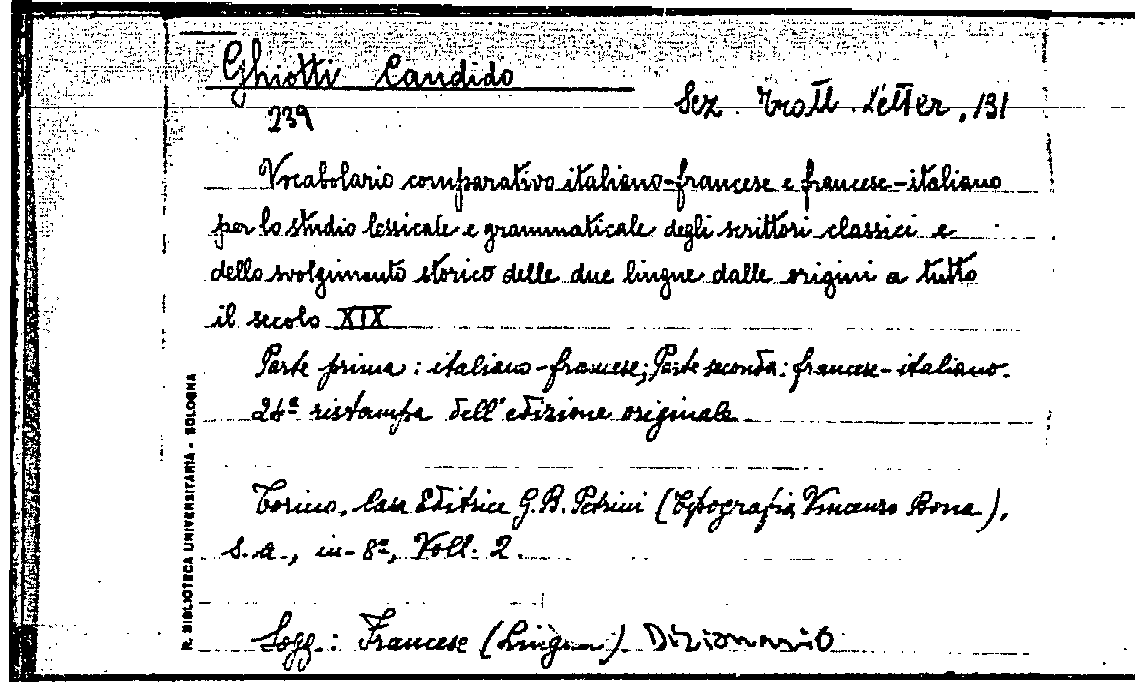 Ghiotti Candido
239
Sez. Tratt. Letter, 131
Vocabolario comparativo italiano-francese e francese-italiano
per lo studio lessicale e grammaticale degli scrittori classici e
dello svolgimento storico delle due lingue dalle origini a tutto
il secolo XIX
Parte prima: italiano-francese; Parte seconda: francese-italiano.
26ª ristampa dell'edizione originale
Torino, Casa Editrice G.B. Petrini (Tipografia Vincenzo Bona),
s.a., in-8º, Voll. 2.
Sogg.: Francese (Lingua) Dizionario
R. BIBLIOTECA UNIVERSITARIA - BOLOGNA